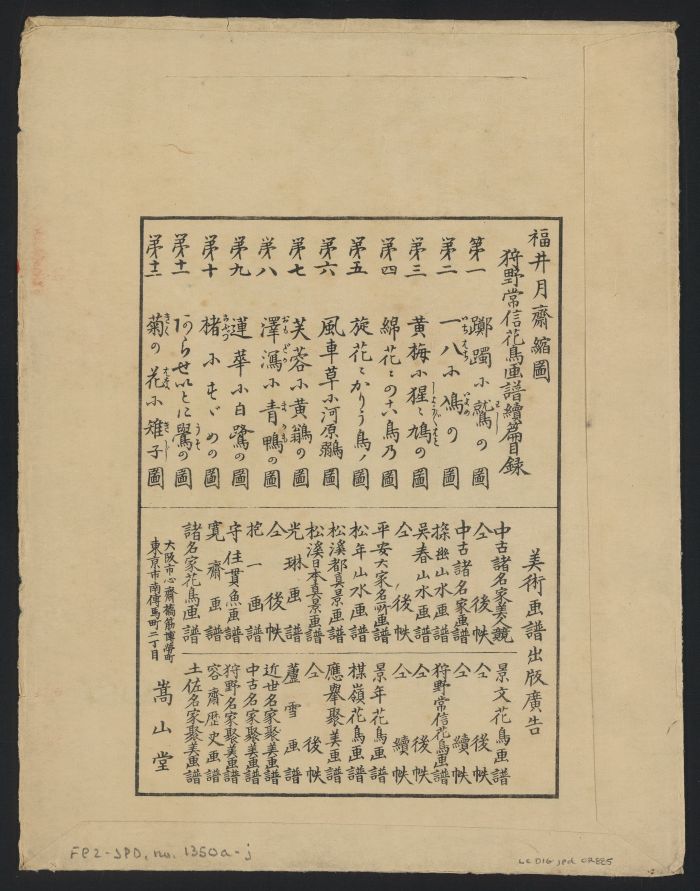 福井月齋縮圖
狩野常信花鳥画譜續篇目録
第一 躑躅小鷲の圖
第二 一八小鳩の圖
第三 黄梅小猩〻鳩の圖
第四 綿花〻の十八鳥乃圖
第五 旋花〻かりう鳥ノ圖
第六 風車草小河原鶸圖
第七 芙蓉小黄鶲の圖
第八 澤瀉小青鴨の圖
第九 蓮華小白鷺の圖
第十 楮小すゞめの圖
第十一 あらせいとに鷽の圖
第十二 菊の花小雉子圖
美術画譜出版廣告
中古諸名家美人競
仝 後帙
中古諸名家画譜
探幽山水画譜
呉春山水画譜
仝 後帙
平安大家名所画譜
松年山水画譜
松溪都真景画譜
松溪日本真景画譜
光琳画譜
仝 後帙
抱一画譜
守住貫魚画譜
寛齋画譜
諸名家花鳥画譜
景文花鳥画譜
仝 後帙
仝 續帙
狩野常信花鳥画譜
仝 後帙
仝 續帙
景年花鳥画譜
楳嶺花鳥画譜
應擧聚美画譜
仝 後帙
蘆雪画譜
近世名家聚美画譜
中古名家聚美画譜
狩野名家聚美画譜
容齋歴史画譜
土佐名家聚美画譜
大阪市心齋橋筋博勞町
東京市南傳馬町二丁目
嵩山堂
FP2-JPD, no. 1350a-j
LC DIG jpd 02885